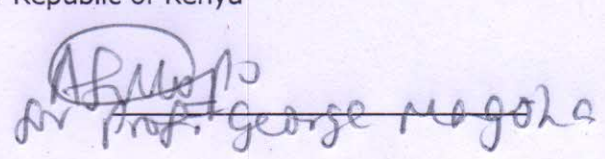 Republic of Kenya
for Prof. George Magoha